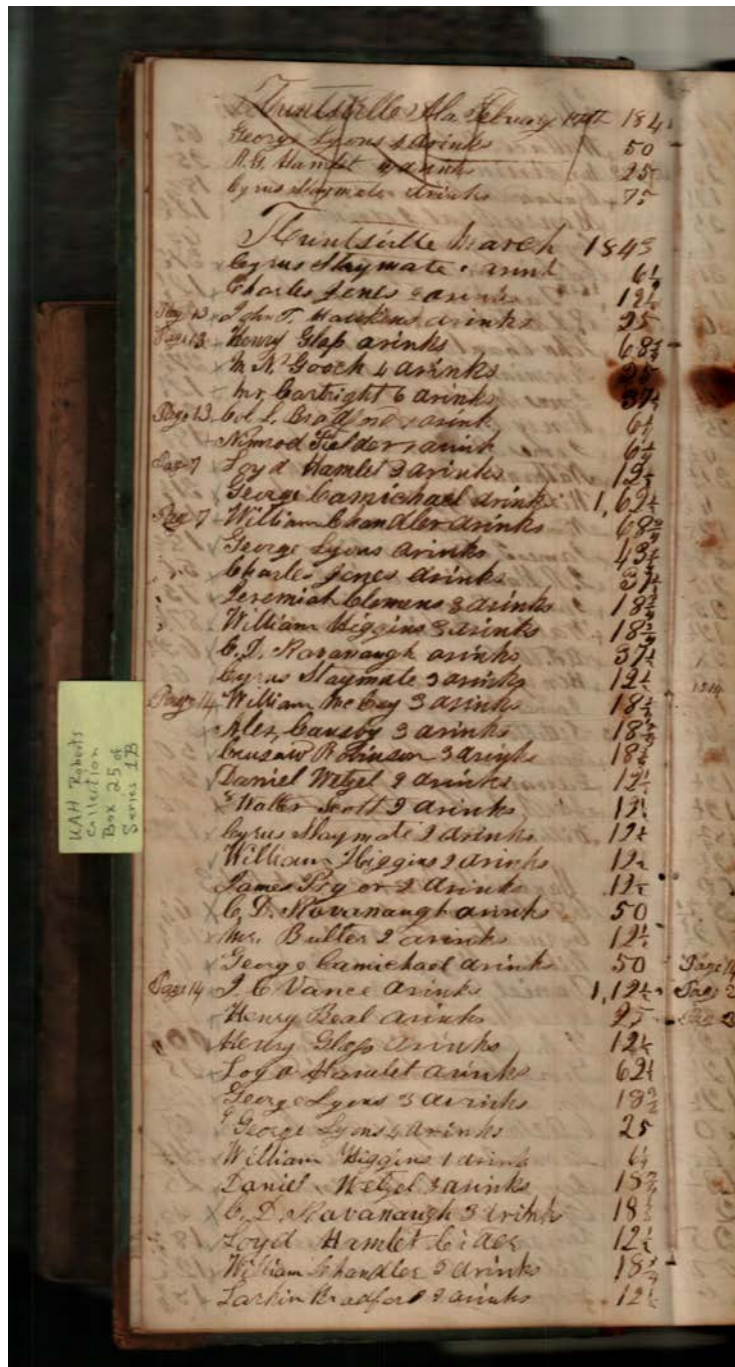 Huntsville Ala February 184
George Lyons 4 drinks 50
A. G. Hamlet drinks 25
Cyrus Slaymate drinks 75
Huntsville March 1843
Cyrus Slaymate 1 drink 6 1/4
Charles Jones 2 drinks 12 1/2
Page 13 John T. Hawkins drinks 25
Page 13 Henry Glass drinks 68 3/4
M N Gooch 4 drinks 25
Mr. Cartright 6 drinks 37 1/2
Page 13 Col L. Bradford 1 drink 6 1/4
Nimrod Fielder 1 drink 6 1/4
Page 7 Loyd Hamlet 2 drinks 12 1/2
George Camichael drinks 1,62 1/2
Page 7 William Chandler drinks 68 3/4
George Lyons drinks 43 3/4
Charles Jones drinks 37 1/2
Jeremiah Clemens 3 drinks 18 3/4
William Higgins 3 drinks 18 3/4
C. D. Kavanaugh drinks 37 1/2
Cyrus Slaymate 2 drinks 12 1/2
Page 14 William McCay 3 drinks 18 3/4
Alex, Causby 3 drinks 18 3/4
Robinson 3 drinks 18 3/4
Daniel Wetzel 2 drinks 12 1/2
Walter Scott 2 drinks 12 1/2
Cyrus Slaymate 2 drinks 12 1/2
William Higgins 2 drinks 12 1/2
James Pryor 2 drinks 12 1/2
C. D. Kavanaugh drinks 50
Mr. Butler 2 drinks 12 1/2
George Camichael drinks 50 Page 14
Page 14 J. C Vance drinks 1,12 1/2 Page
Henry Beal drinks 25
Henry Glass drinks 12 1/2
Loyd Hamlet drinks 62 1/2
George Lyons 3 drinks 18 3/4
George Lyons 4 drinks 25
William Higgins 1 drink 6 1/4
Daniel Wetzel 3 drinks 18 3/4
C. D. Kavanaugh 3 drinks 18 3/4
Loyd Hamlet Cider 12 1/2
William Chandler 3 drinks 18 3/4
Larkin Bradford 2 drinks 12 1/2
UAH Roberts
Collection
Box 25 of
Series 1B